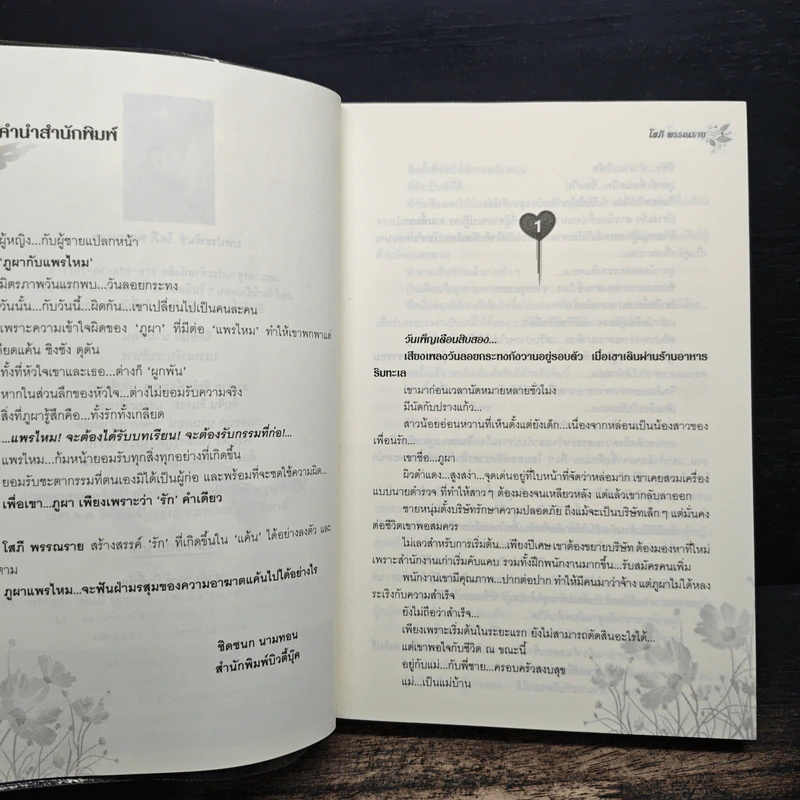 คำนำสำนักพิมพ์
ผู้หญิง...กับผู้ชายแปลกหน้า
'ภูผากับแพรไหม'
มิตรภาพวันแรกพบ...วันลอยกระทง
วันนั้น...กับวันนี้...ผิดกัน...เขาเปลี่ยนไปเป็นคนละคน
เพราะความเข้าใจผิดของ 'ภูผา' ที่มีต่อ 'แพรไหม' ทำให้เขาพกพาแต่
ชิงชัง ดุดัน
ทั้งที่หัวใจเขาและเธอ...ต่างก็ 'ผูกพัน'
หากในส่วนลึกของหัวใจ...ต่างไม่ยอมรับความจริง
สิ่งที่ภูผารู้สึกคือ...ทั้งรักทั้งเกลียด
...แพรไหม! จะต้องได้รับบทเรียน! จะต้องรับกรรมที่ก่อ!...
แพรไหม...ก้มหน้ายอมรับทุกสิ่งทุกอย่างที่เกิดขึ้น
ยอมรับชะตากรรมที่ตนเองมิได้เป็นผู้ก่อ และพร้อมที่จะชดใช้ความผิด...
เพื่อเขา...ภูผา เพียงเพราะว่า 'รัก' คำเดียว
โสภี พรรณราย สร้างสรรค์ 'รัก' ที่เกิดขึ้นใน 'แค้น' ได้อย่างลงตัว และ
ตาม
ภูผาแพรไหม...จะฟันฝ่ามรสุมของความอาฆาตแค้นไปได้อย่างไร
ชิดชนก นามทอน
สำนักพิมพ์บิวตี้บุ๊ค
โสภี พรรณราย 1
1
วันเพ็ญเดือนสิบสอง...
เสียงเพลงวันลอยกระทงกังวานอยู่รอบตัว เมื่อเขาเดินผ่านร้านอาหาร
ริมทะเล
เขามาก่อนเวลานัดหมายหลายชั่วโมง
มีนัดกับปรางแก้ว...
สาวน้อยอ่อนหวานที่เห็นตั้งแต่ยังเด็ก...เนื่องจากหล่อนเป็นน้องสาวของ
เพื่อนรัก...
เขาชื่อ...ภูผา
ผิวดำแดง...สูงสง่า...จุดเด่นอยู่ที่ใบหน้าที่จัดว่าหล่อมาก เขาเคยสวมเครื่อง
แบบนายตำรวจ ที่ทำให้สาว ๆ ต้องมองจนเหลียวหลัง แต่แล้วเขากลับลาออก
ชายหนุ่มตั้งบริษัทรักษาความปลอดภัย ถึงแม้จะเป็นบริษัทเล็ก ๆ แต่มั่นคง
ต่อชีวิตเขาพอสมควร
ไม่เลวสำหรับการเริ่มต้น...เพียงปีเศษ เขาต้องขยายบริษัท ต้องมองหาที่ใหม่
เพราะสำนักงานเก่าเริ่มคับแคบ รวมทั้งฝึกพนักงานมากขึ้น...รับสมัครคนเพิ่ม
พนักงานเขามีคุณภาพ...ปากต่อปาก ทำให้มีคนมาว่าจ้าง แต่ภูผาไม่ได้หลง
ระเริงกับความสำเร็จ
ยังไม่ถือว่าสำเร็จ...
เพียงเพราะเริ่มต้นในระยะแรก ยังไม่สามารถตัดสินอะไรได้...
แต่เขาพอใจกับชีวิต ณ ขณะนี้
อยู่กับแม่...กับพี่ชาย...ครอบครัวสงบสุข
แม่...เป็นแม่บ้าน